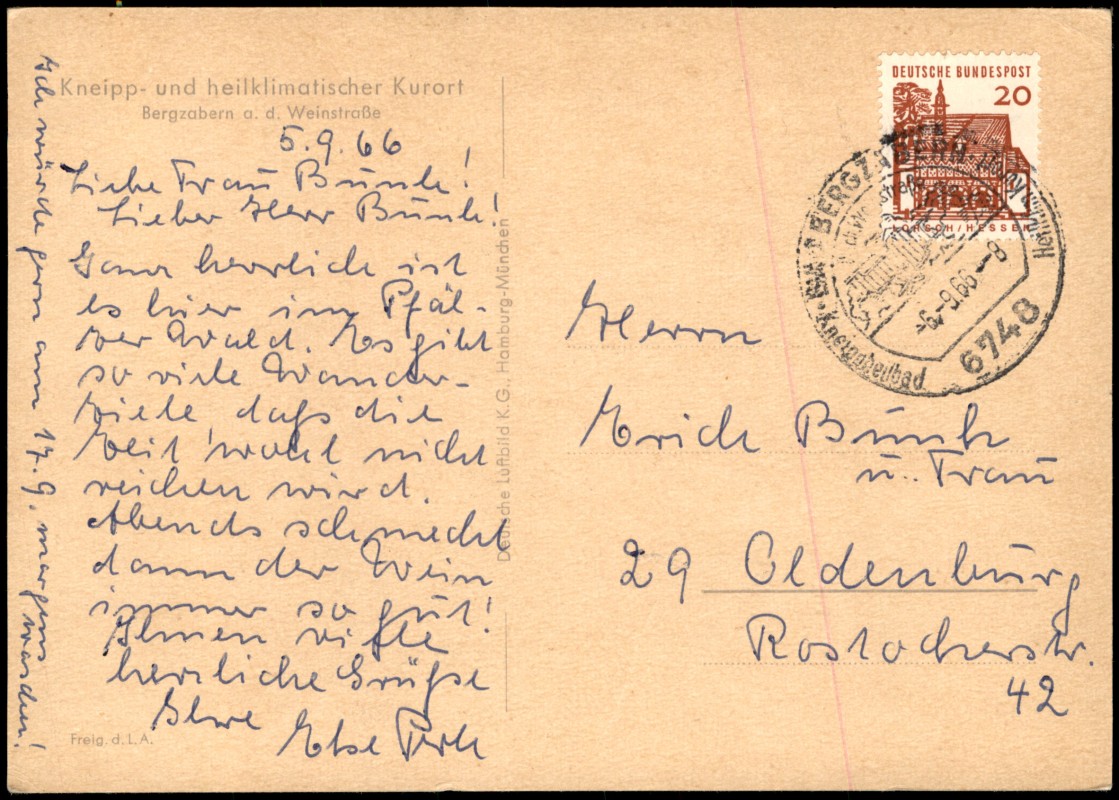 Kneipp- und heilklimatischer Kurort
Bergzabern a. d. Weinstraße
5.9.66
Liebe Frau Bunk!
Lieber Herr Bunk!
Ganz herrlich ist
es hier im Pfäl-
zer Wald. Es gibt
so viele Wander-
ziele daß die
Zeit wohl nicht
reichen wird.
Abends schmeckt
dann der Wein
immer so gut!
Ihnen viele
herzliche Grüße
Ihre
Else
Freig. d. L. A.
Ich würde gern am 17.9. morgens
waschen!
Deutsche Luftbild K.G., Hamburg-München
DEUTSCHE BUNDESPOST
20
LORSCH/HESSEN
BERGZABERN
Kneippheilbad
-6.-9.66-8
6748
Herrn
Erich Bunk
u. Frau
29 Oldenburg
Rostocherstr.
42